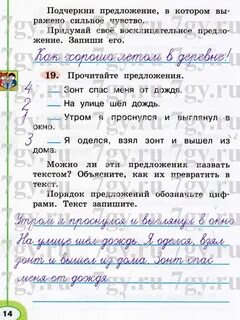 Подчеркни предложение, в котором выражено сильное чувство.
Придумай своё восклицательное предложение. Запиши его.
Как хорошо летом в деревне!
19. Прочитайте предложения.
4. – Зонт спас меня от дождя.
2 – На улице шёл дождь.
1 – Утром я проснулся и выглянул в окно.
3 – Я оделся, взял зонт и вышел из дома.
Можно ли эти предложения назвать текстом? Объясните, как их превратить в текст.
Порядок предложений обозначьте цифрами. Текст запишите.
Утром я проснулся и выглянул в окно.
На улице шёл дождь. Я оделся, взял
зонт и вышел из дома. Зонт спас
меня от дождя.
14
www.7gy.ru